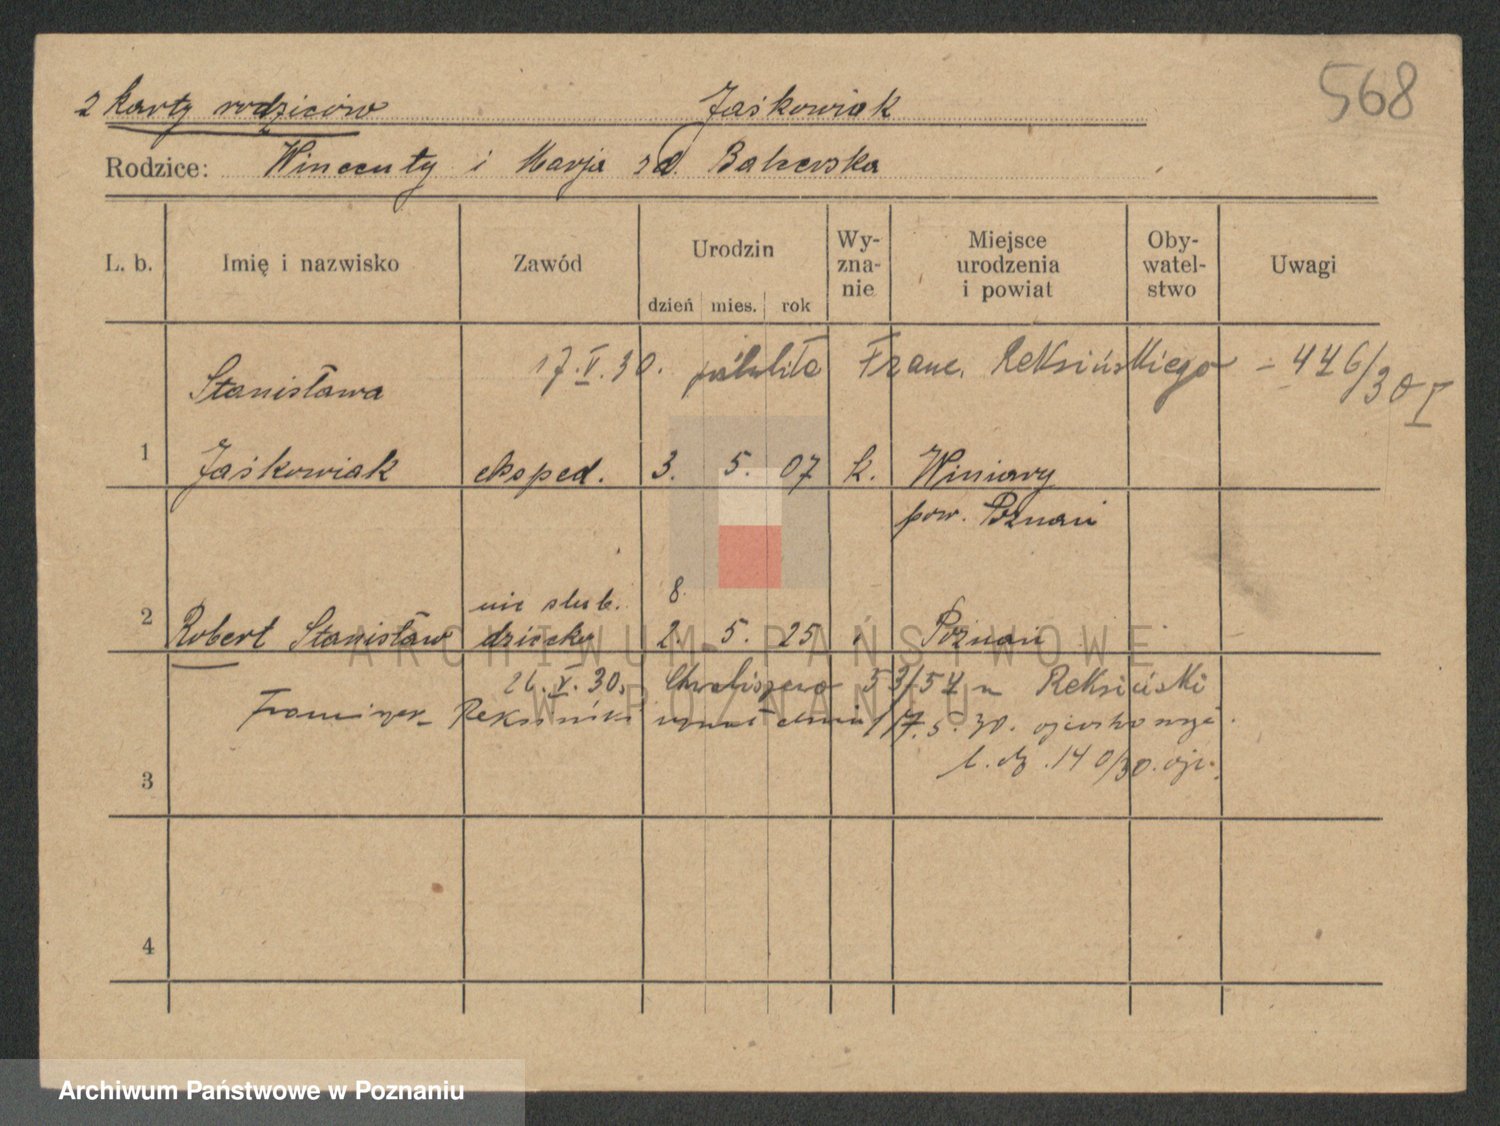 568
2 karty rodziców Jaśkowiak
Rodzice: Wincenty i Marja zd. Balcerska
L. b. Imię i nazwisko Zawód Urodzin dzień mies. rok Wy-zna-nie Miejsce urodzenia i powiat Oby-watel-stwo Uwagi
17.V.30. poślubiła Franc. Reksińskiego – 446/30 I
Stanisława
1 Jaśkowiak eksped. 3. 5. 07 k. Winiary
pow. Poznań
nie ślub. 8.
2 Robert Stanisław dziecko 2. 5. 25 Poznań
ARCHIWUM PAŃSTWOWE
26.V.30. Chwaliszewo 53/54 u Reksiński
W POZNANIU
Franciszek Reksiński uznał dnia 17.5.30. ojcostwo
l. dz. 140/30.
3
4
Archiwum Państwowe w Poznaniu